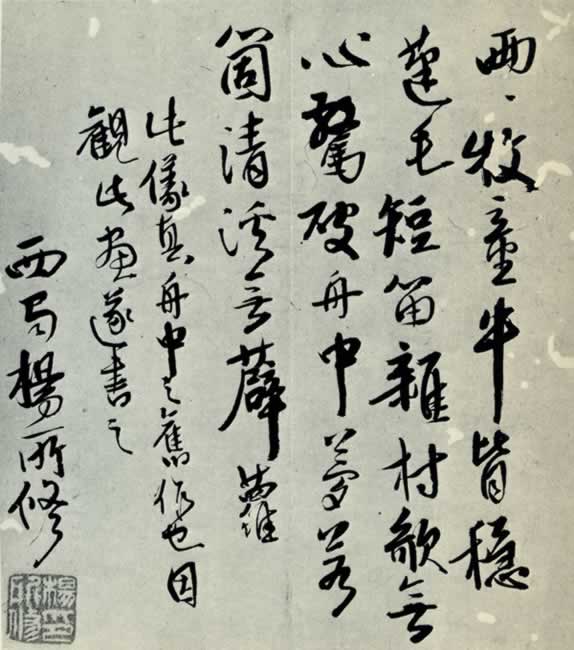 兩〻牧童牛背穩
蓬毛短笛雜村歌無
心驚破舟中夢若
箇清溪無薜蘿
此儀真舟中之舊作也因
觀此畫遂書之
西蜀楊所修
楊印所修